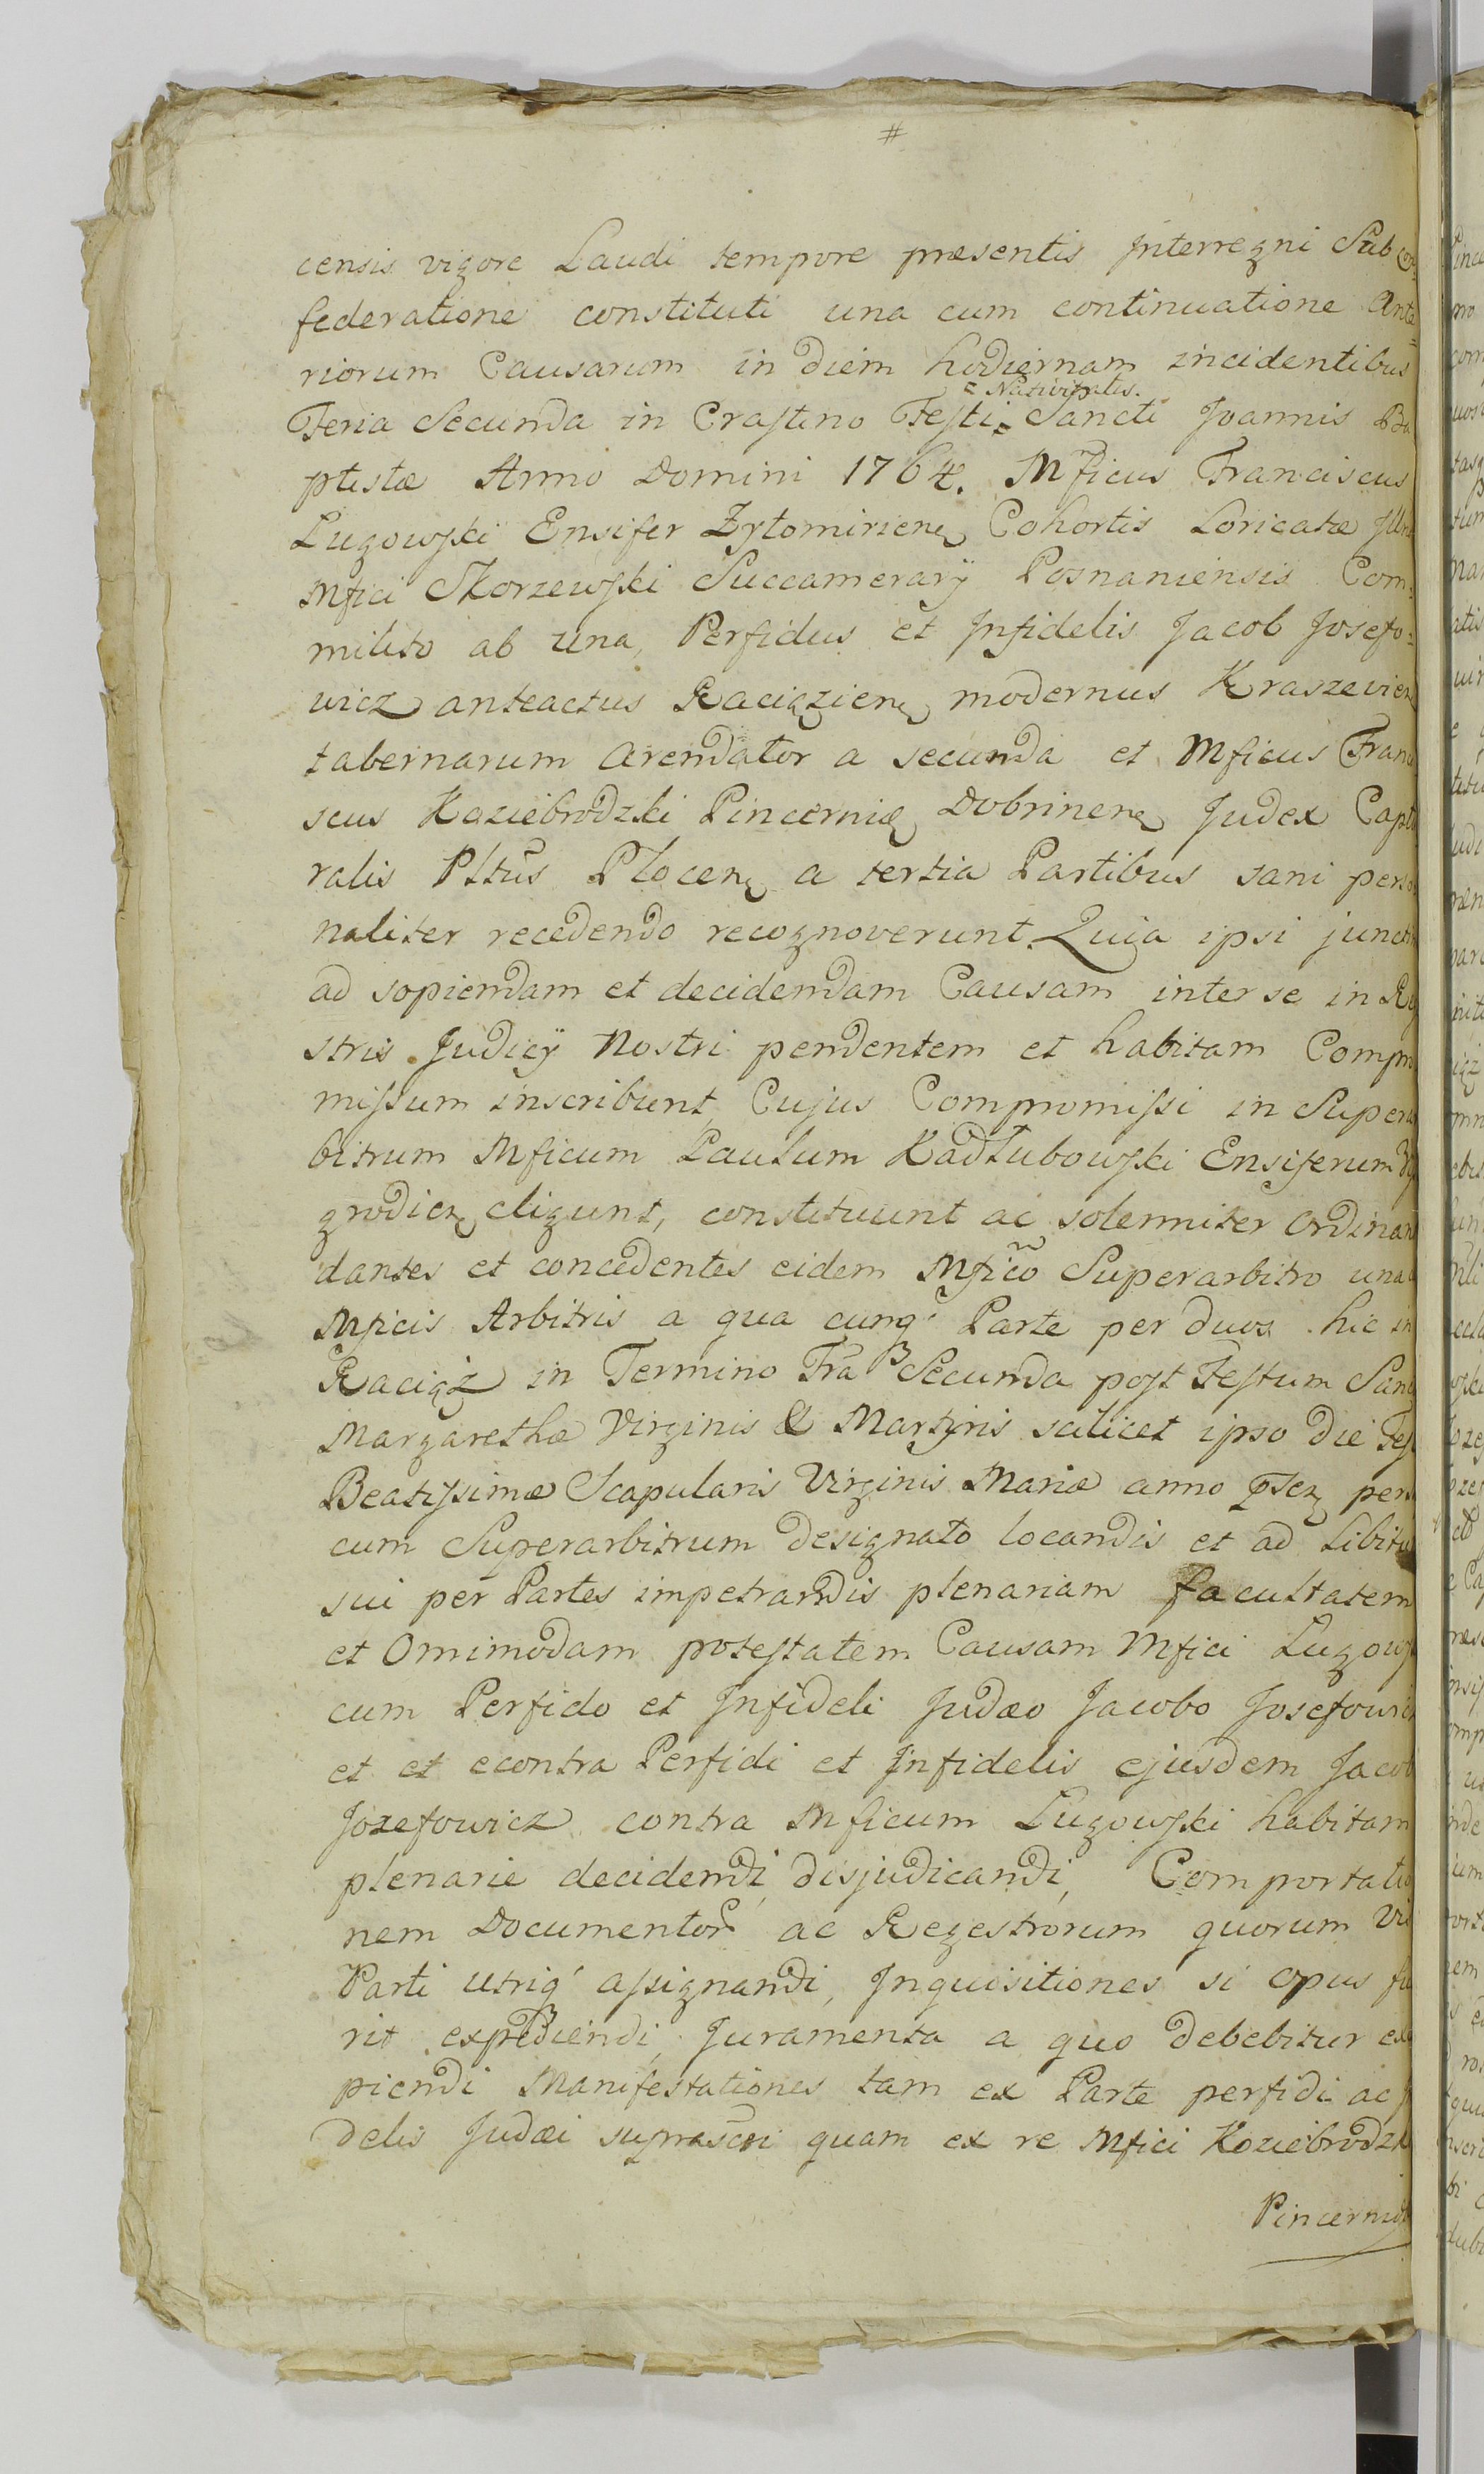 #
censis vigore Laudi tempore præsentis Interregni Sub Con
federatione constituti una cum continuatione Ante
riorum Causarum in diem hodiernam incidentibus
= Nativitatis.
Feria Secunda in Crastino Festi = Sancti Joannis Ba
ptistæ Anno Domini 1764. Mficus Franciscus
Lugowski Ensifer Zytomirien Cohortis Loricatæ Illris
Mfici Skorzewski Succamerarij Posnaniensis Com=
milito ab una, Perfidus et Infidelis Jacob Josefo=
wicz anteactus Raciązien modernus Kraszevien
tabernarum Arendator a secunda et Mficus Franci
scus Koziebrodzki Pincernia Dobrinen Judex Captu
ralis Pltus Plocen a tertia Partibus sani perso
naliter recedendo recognoverunt. Quia ipsi junctim
ad sopiendam et decidendam Causam inter se in Reg
stris Judicij Nostri pendentem et habitam Compro
missum inscribunt, Cujus Compromissi in Superar
bitrum Mficum Paulum Kadłubowski Ensiferum Wy
grodien eligunt, constituunt ac solenniter Ordinant
dantes et concedentes eidem Mfico Superarbitro una
Mficis Arbitris a qua cunq' Parte per duos hic in
Raciąż in Termino Fra Secunda post Festum Sanc
Margarethæ Virginis & Martyris scilicet ipso die Fes
Beatissimæ Scapularis Virginis Mariæ anno pten per
cum Superarbitrum designato locandis et ad libitu
sui per Partes impetrandis plenariam facultatem
et Omnimodam potestatem Causam Mfici Lugows
cum Perfido et Infideli Judæo Jacobo Josefowicz
et et econtra Perfidi et Infidelis ejusdem Jacob
Jozefowicz contra Mficum Lugowski habitam
plenarie decidendi, disjudicandi, Comportatio
nem Documentor ac Regestrorum quorum Vi
Parti utriq' assignandi, Inquisitiones si opus fu
rit expediendi, Juramenta a quo debebitur exci
piendi Manifestationes tam ex Parte perfidi ac
delis Judæi suprascri quam ex re Mfici Koziebrodzk
Pincernidæ